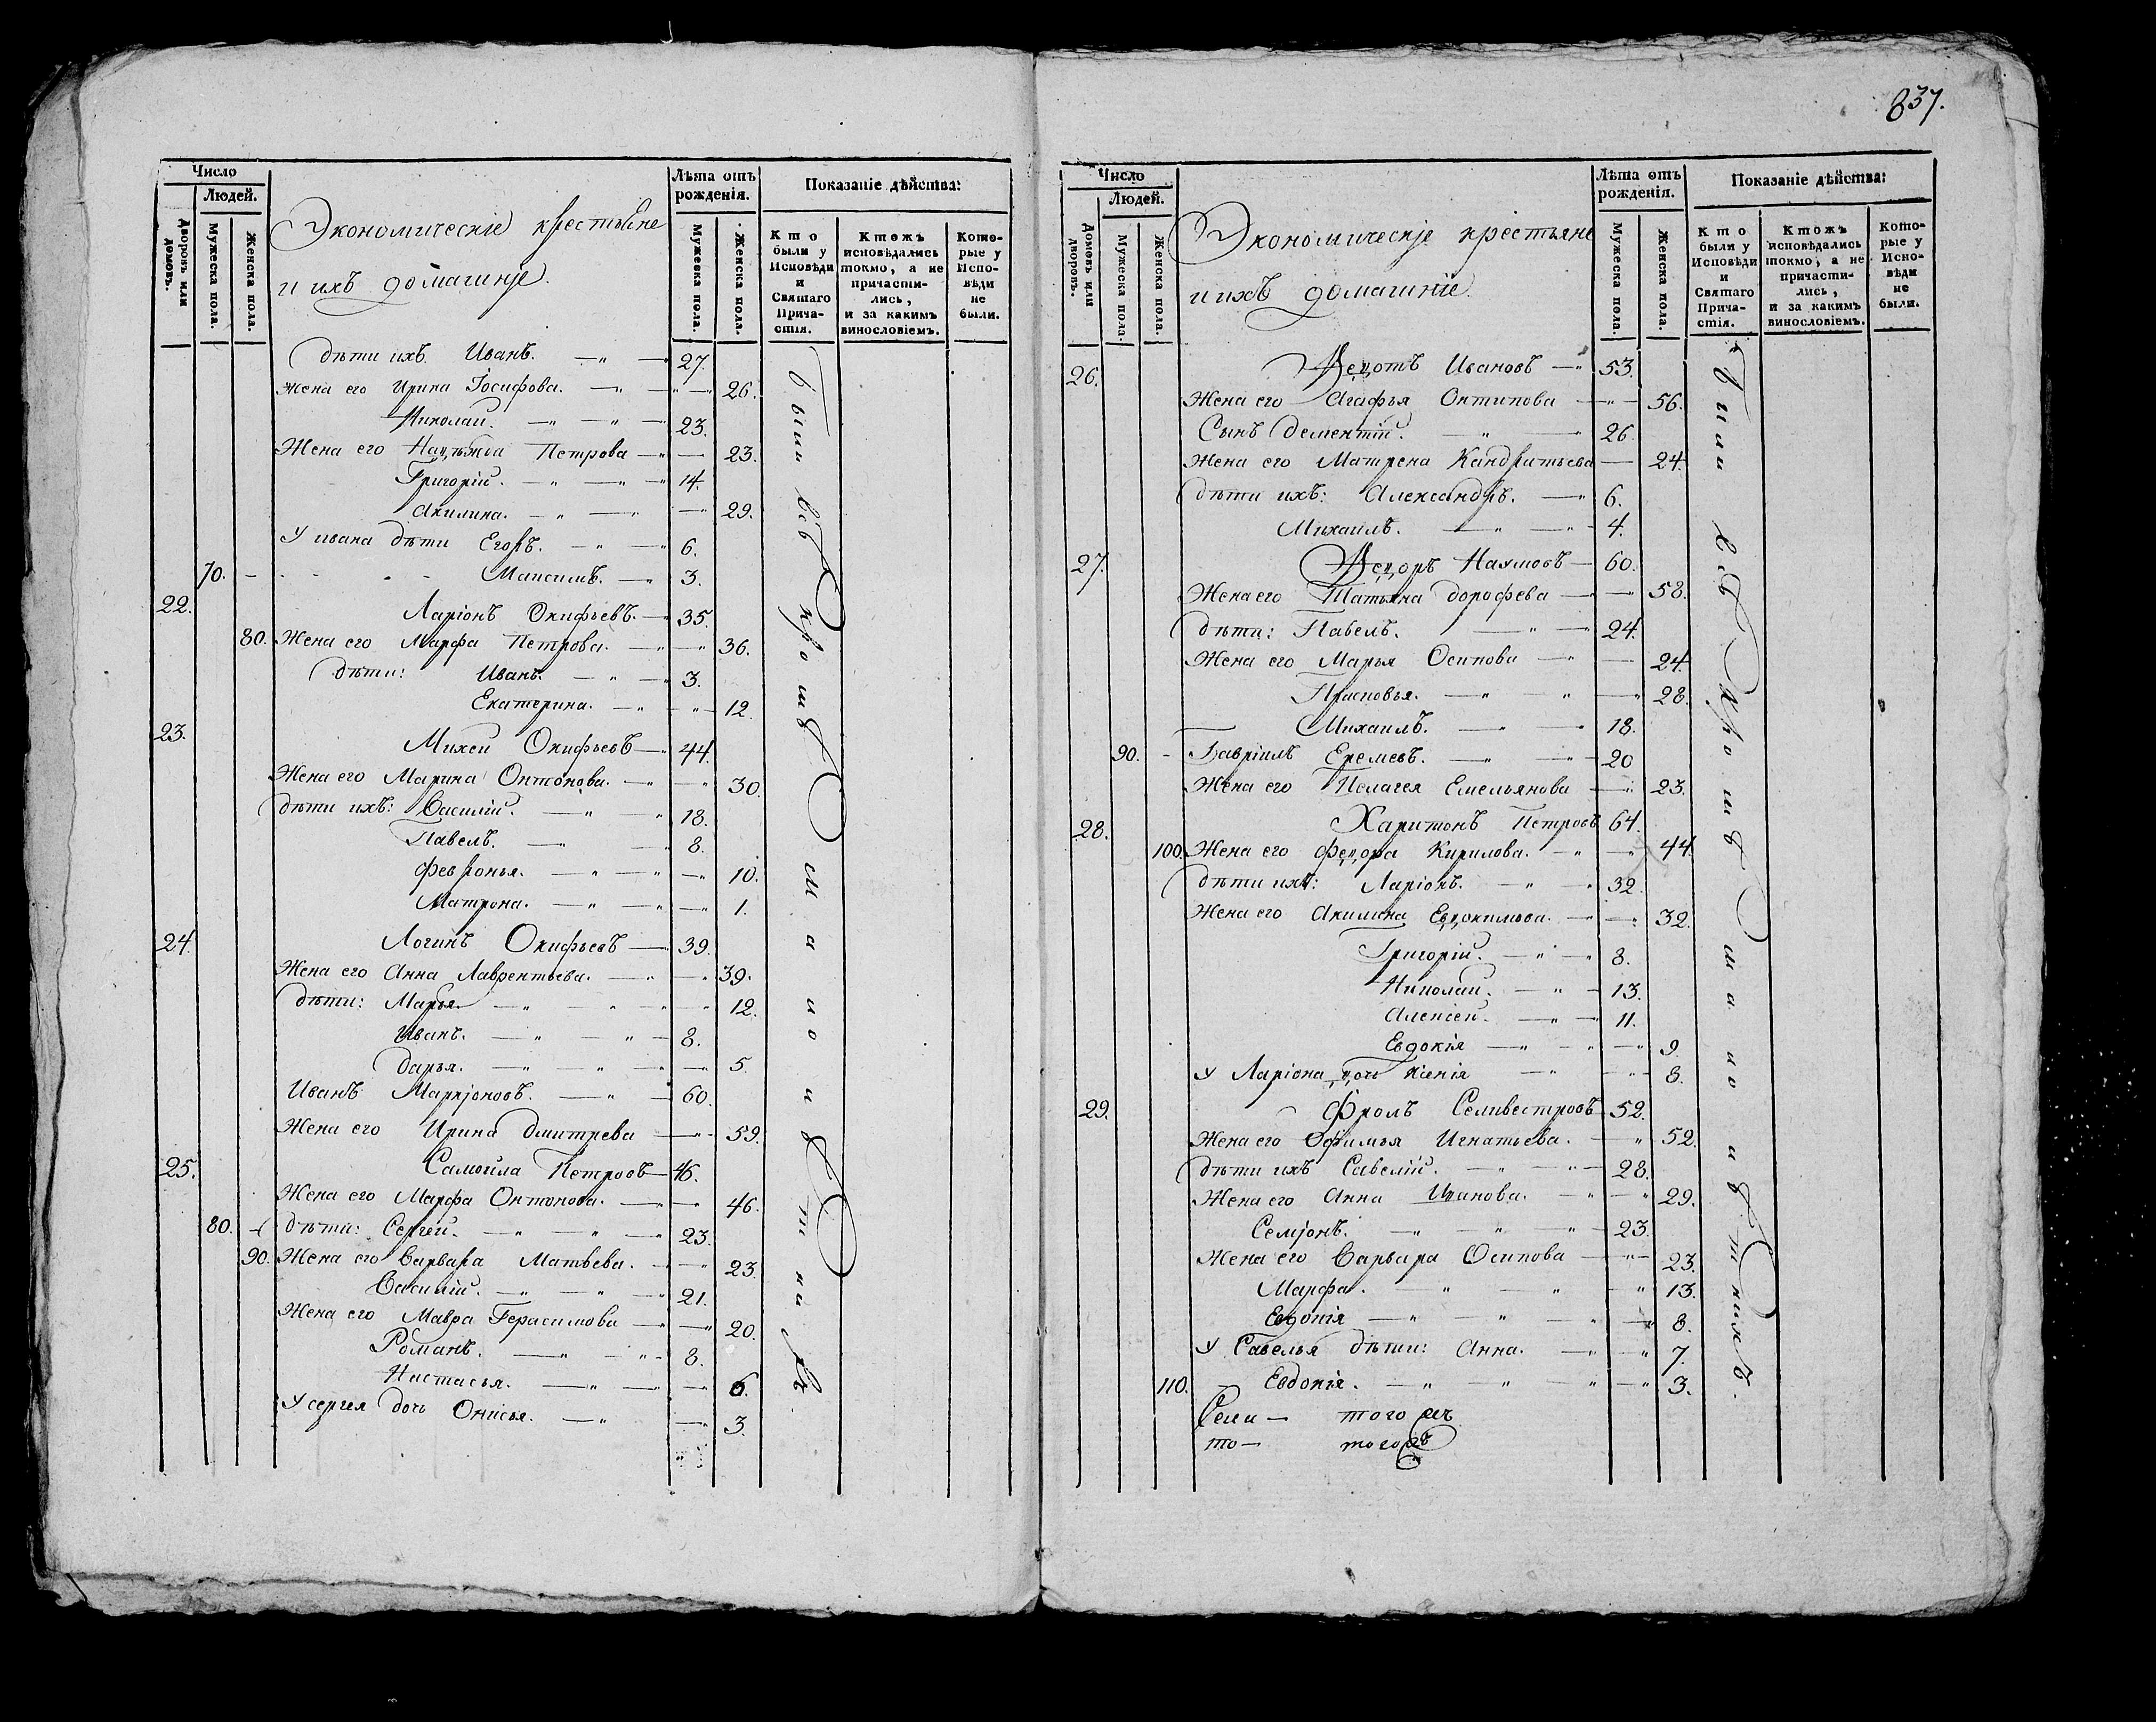 Число
Людей.
Дворовъ или домовъ.
Мужеска пола.
Женска пола.
Экономическіе крестьяне
и ихъ домашніе.
Лѣта отъ рожденія.
Мужеска пола.
Женска пола.
Показаніе дѣйства:
Кто были у Исповѣди и Святаго Причастія.
Ктожъ исповѣдались токмо, а не причастились, и за какимъ винословіемъ.
Которые у Исповѣди не были.
дѣти ихъ Иванъ. 27.
Жена его Ирина Іосифова. 26.
Николай. 23.
Жена его Надѣжда Петрова 23.
Григорій. 14.
Акилина. 29.
У ивана дѣти Егоръ. 6.
70. Максимъ. 3.
22. Ларіонъ Окифьевъ. 35.
80. Жена его Марфа Петрова. 36.
дѣти: Иванъ. 3.
Екатерина. 12.
23. Михей Окифьевъ 44.
Жена его Марина Онтонова. 30.
дѣти ихъ: Василій. 18.
Павелъ. 8.
Февронья. 10.
Матрона. 1.
24. Логинъ Окифьевъ 39.
Жена его Анна Лаврентьева. 39.
дѣти: Марья. 12.
Иванъ. 8.
Дарья. 5.
Иванъ Маркіоновъ. 60.
Жена его Ирина Дмитрева 59.
25. Самойла Петровъ 46.
Жена его Марфа Онтонова. 46.
80. дѣти: Сергей. 23.
90. Жена его Варвара Матвева. 23.
Василій. 21.
Жена его Мавра Герасимова 20.
Романъ. 8.
Настасья. 6.
У сергея дочь Онисья. 3.
были всѣ
837.
Число
Людей.
Домовъ или дворовъ.
Мужеска пола.
Женска пола.
Экономическіе крестьяне
и ихъ домашніе.
Лѣта отъ рожденія.
Мужеска пола.
Женска пола.
Показаніе дѣйства:
Кто были у Исповѣди и Святаго Причастія.
Ктожъ исповѣдались токмо, а не причастились, и за какимъ винословіемъ.
Которые у Исповѣди не были.
26. Ѳедотъ Ивановъ 53.
Жена его Агафья Онтипова 56.
Сынъ Дементій. 26.
Жена его Матрена Кандратьева 24.
дѣти ихъ: Александръ. 6.
Михаилъ. 4.
27. Ѳедоръ Наумовъ 60.
Жена его Татьяна Дорофева 58.
дѣти: Павелъ. 24.
Жена его Марья Осипова 24.
Прасковья. 28.
Михаилъ. 18.
90. Гавріилъ Еремевъ. 20
Жена его Пелагея Емельянова 23.
28. Харитонъ Петровъ 64.
100. Жена его Федора Кирилова. 44.
дѣти ихъ: Ларіонъ. 32.
Жена его Акилина Евдокимова. 32.
Григорій. 8.
Николай. 13.
Алексей. 11.
Евдокія 9.
У Ларіона дочь Ксенія 8.
29. Фролъ Селивестровъ 52.
Жена его Офимья Игнатьева. 52.
дѣти ихъ Савелій. 28.
Жена его Анна 29.
Семіонъ. 23.
Жена его Варвара Осипова 23.
Марфа. 13.
Евдокія 8.
У Савелья дѣти: Анна. 7.
110. Евдокія. 3.
Села того
то того
были всѣ